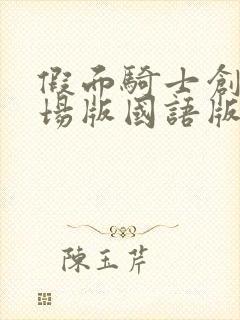 假面騎士創
場版國語版
陳玉芹